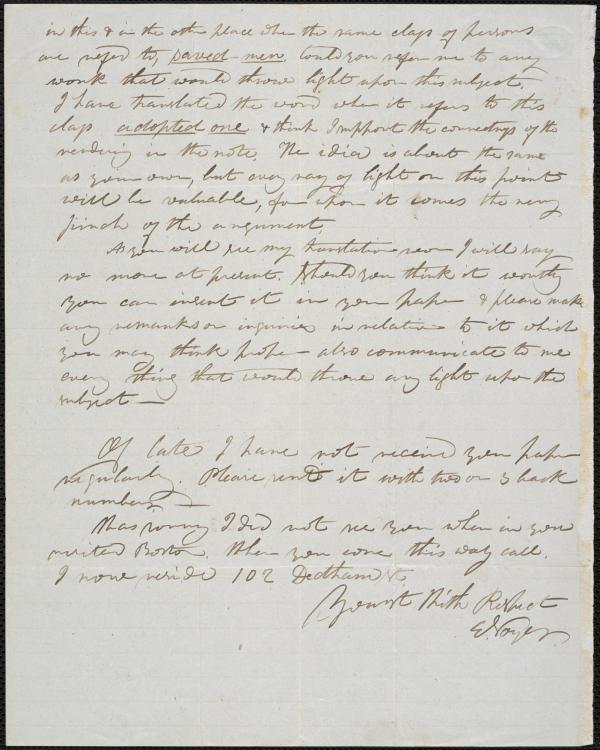 in this & in the other place when the same class of persons
are referd to, saved men. Could you refer me to any
work that would throw light upon this subject.
I have translated the word when it refers to this
class adopted one & think I support the correctness of the
rendering in the note. The idia is about the same
as your own, but every ray of light on this point
will be valuable, for upon it comes the very
pinch of the argument.
As you will see my translation soon I will say
no more at present. Should you think it worthy
you can insert it in your paper & please make
any remarks or inquiries in relation to it which
you may think proper also communicate to me
every thing that would throw any light upon the
subject —
Of late I have not received your paper
regularly. Please send it with two or 3 back
numbers —
Was sorry I did not see you when in you
visited Boston. When you come this way call.
I now reside 102 Dedham St.
Yours With Respect
E. Noyes.